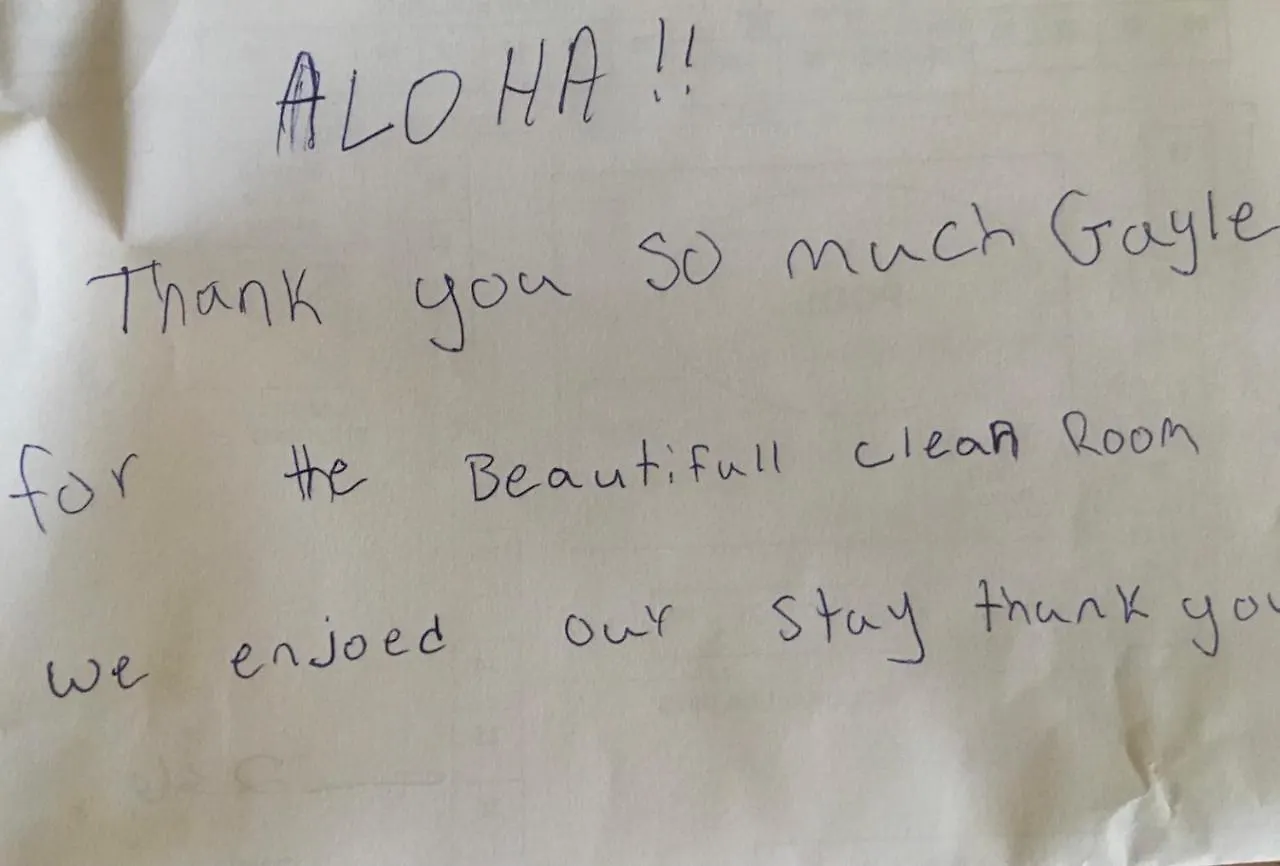 ALOHA!!
Thank you so much Gayle
for the Beautifull clean Room
we enjoed our stay thank you